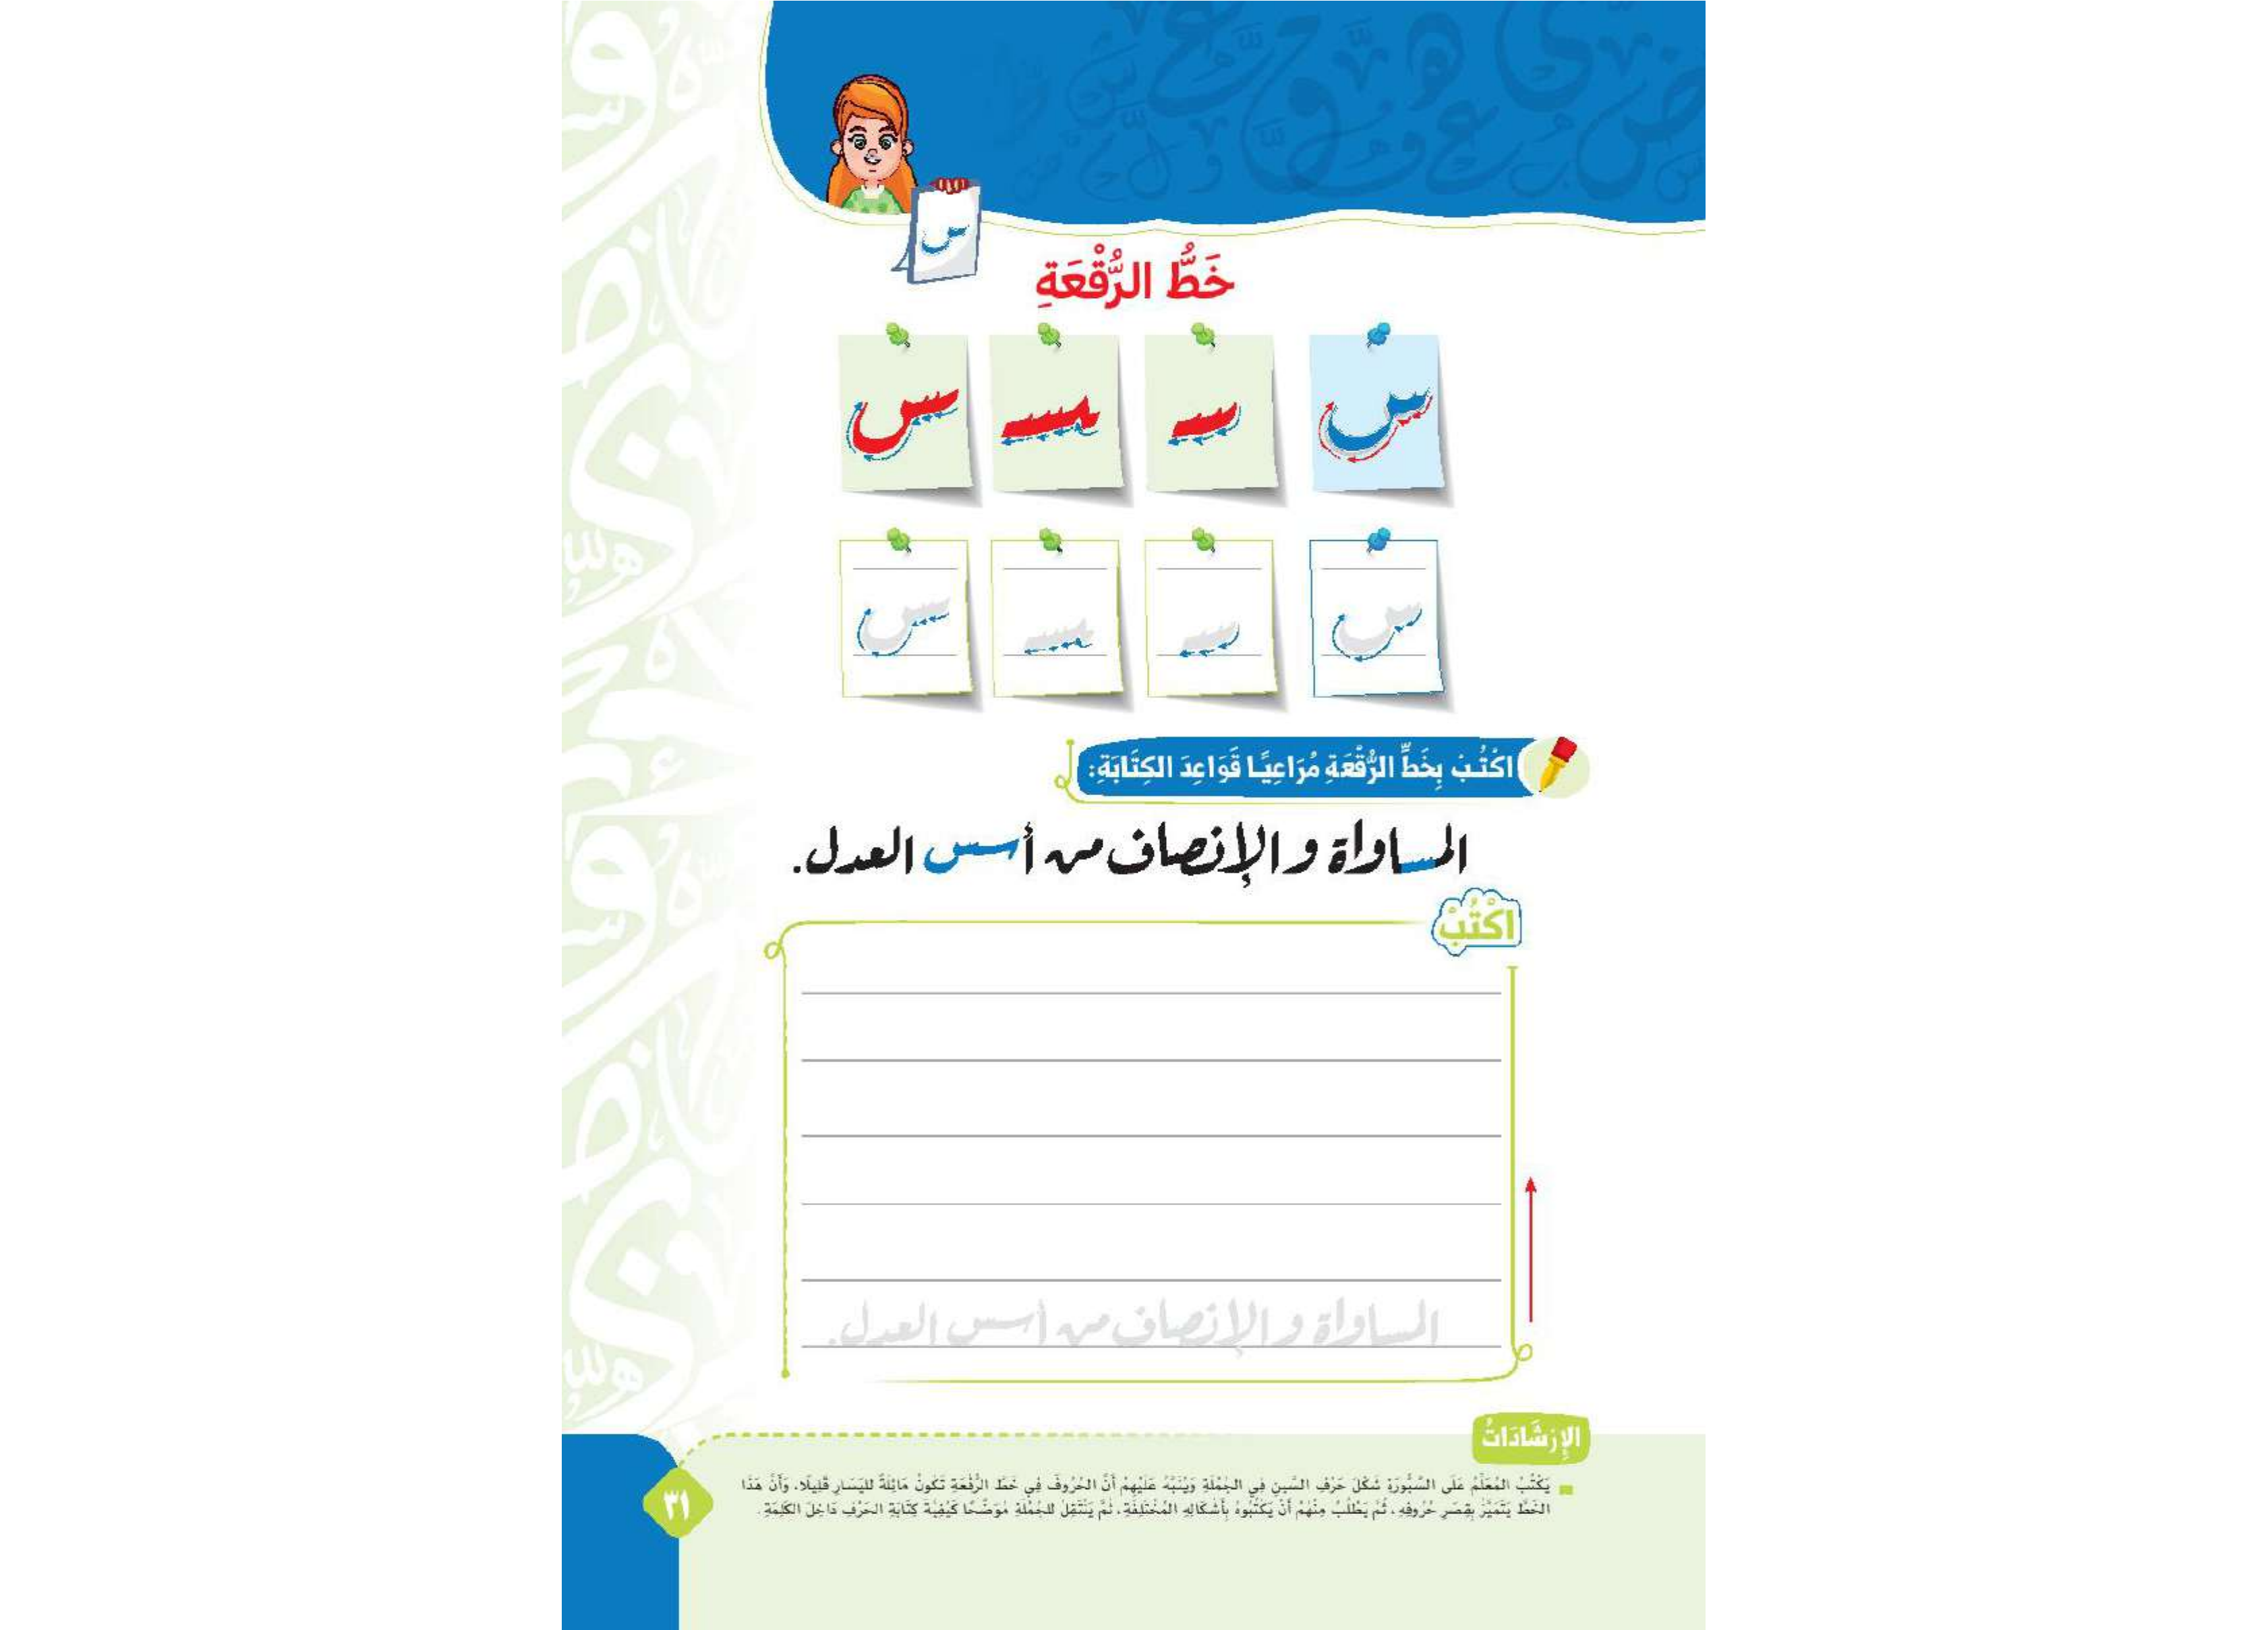 س
خَطُّ الرُّقْعَةِ
س ـسـ ـسـ ـس
س ـسـ ـسـ ـس
اكْتُبْ بِخَطِّ الرُّقْعَةِ مُرَاعِيًا قَوَاعِدَ الكِتَابَةِ:
المساواة والإنصاف من أسس العدل.
اكْتُبْ
المساواة والإنصاف من أسس العدل.
الإِرْشَادَاتُ
يَكْتُبُ المُعَلِّمُ عَلَى السَّبُّورَةِ شَكْلَ حَرْفِ السِّينِ فِي الجُمْلَةِ وَيُنَبِّهُ عَلَيْهِمْ أَنَّ الحُرُوفَ فِي خَطِّ الرُّقْعَةِ تَكُونُ مَائِلَةً لليَسَارِ قَلِيلًا، وَأَنَّ هَذَا
الخَطَّ يَتَمَيَّزُ بِقِصَرِ حُرُوفِهِ، ثُمَّ يَطْلُبُ مِنْهُمْ أَنْ يَكْتُبُوهُ بِأَشْكَالِهِ المُخْتَلِفَةِ، ثُمَّ يَنْتَقِلُ للجُمْلَةِ مُوَضِّحًا كَيْفِيَّةَ كِتَابَةِ الحَرْفِ دَاخِلَ الكَلِمَةِ.
٣١